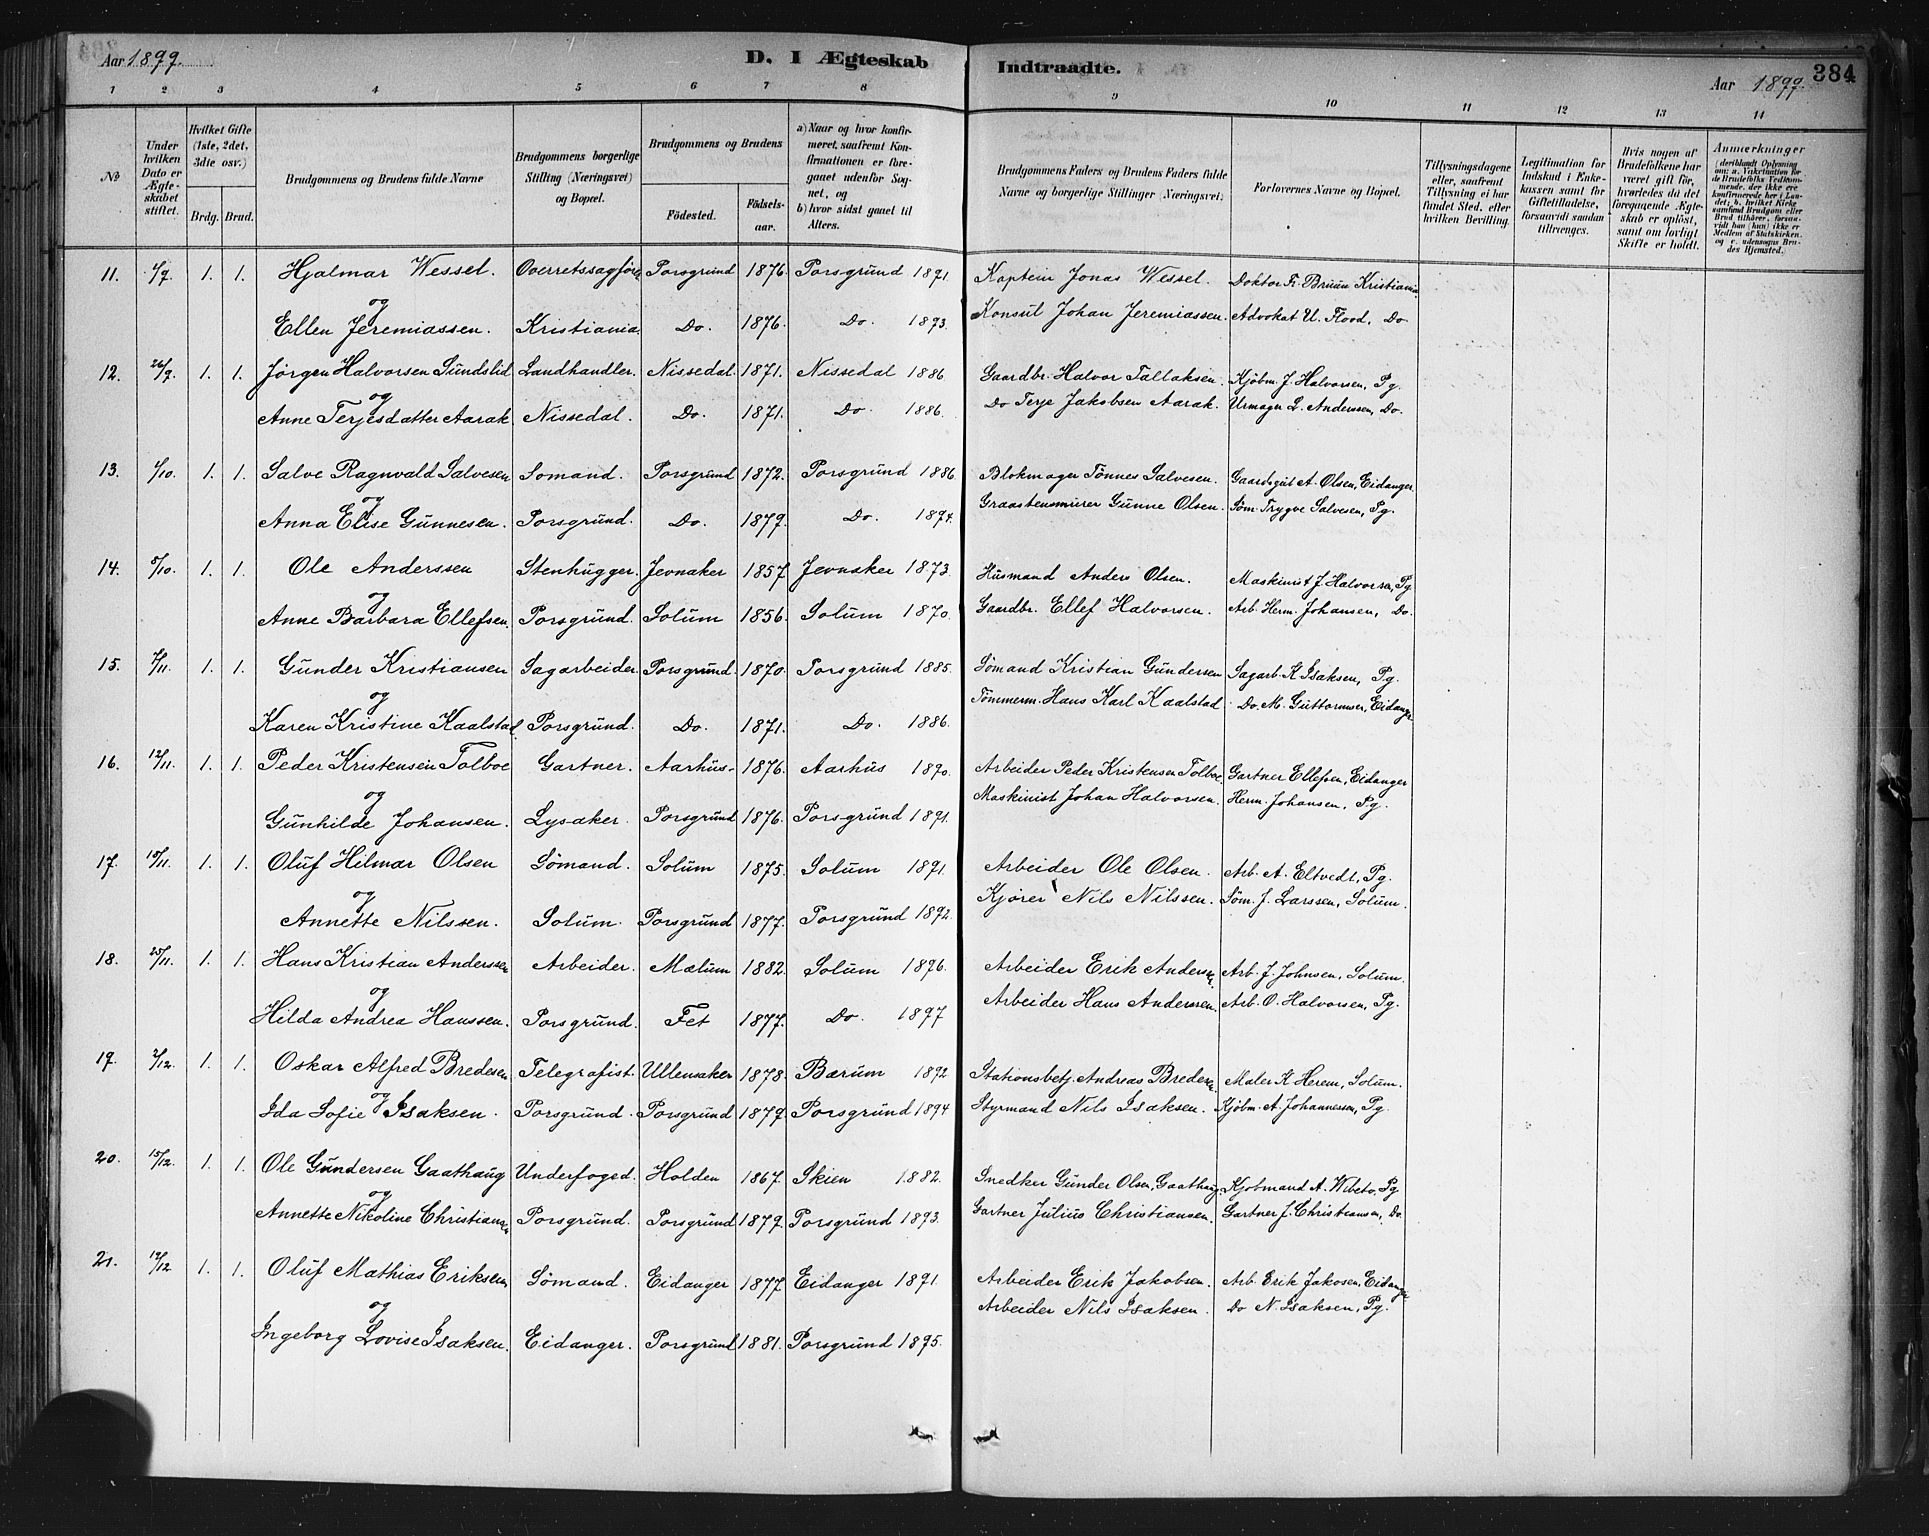 Aar 1899.
D. I Ægteskab Indtraadte.
Aar 1899.
384
1 2 3 4 5 6 7 8 9 10 11 12 13 14
No
Under hvilken Dato er Ægteskabet stiftet.
Hvilket Gifte (1ste, 2det, 3die osv.)
Brdg. Brud.
Brudgommens og Brudens fulde Navne
Brudgommens borgerlige Stilling (Næringsvei) og Bopæl.
Brudgommens og Brudens
Födested.
Födselsaar.
a) Naar og hvor konfirmeret, saafremt Konfirmationen er foregaaet udenfor Sognet, og
b) hvor sidst gaaet til Alters.
Brudgommens Faders og Brudens Faders fulde Navne og borgerlige Stillinger (Næringsvei).
Forlovernes Navne og Bopæl.
Tillysningsdagene eller, saafremt Tillysning ei har fundet Sted, efter hvilken Bevilling.
Legitimation for Indskud i Enkekassen samt for Giftetilladelse, forsaavidt saadan tiltrænges.
Hvis nogen af Brudefolkene har været gift för, hvorledes da det foregaaende Ægteskab er oplöst, samt om lovligt Skifte er holdt.
Anmerkninger
(deriblandt Oplysning om: a. Vaksination for de Brudefolks Vedkommende, der ikke ere konfirmerede her i Landet; b. hvilket Kirkesamfund Brudgom eller Brud tilhörer, forsaavidt han (hun) ikke er Medlem af Statskirken, og c. udensogns Brudes Hjemsted.)
11. 1/9. 1. 1. Hjalmar Wessel. Overretssagfører Porsgrund 1876. Porsgrund 1891. Kaptein Jonas Wessel. Doktor Fr. Bruun Kristiania.
og
Ellen Jeremiassen. Kristiania. Do. 1876. Do. 1893. Konsul Johan Jeremiassen. Advokat U. Flood, Do
12. 26/9. 1. 1. Jørgen Halvorsen Sundslid Landhandler. Nissedal. 1871. Nissedal 1886. Gaardbr. Halvor Tallaksen. Kjøbm. J. Halvorsen, Pg.
og
Anne Terjesdatter Aarak. Nissedal. Do. 1871. Do. 1886. Do Terje Jakobsen Aarak. Urmager L. Anderssen, Do.
13. 1/10. 1. 1. Salve Ragnvald Salvesen Sømand. Porsgrund 1872. Porsgrund 1886. Blokmager Tønnes Salvesen. Gaardsgut A. Olsen, Eidanger
og
Anna Elise Gunnesen. Porsgrund. Do. 1879. Do. 1894. Graastensmurer Gunne Olsen. Søm. Trygve Salvesen, Pg.
14. 8/10. 1. 1. Ole Anderssen Stenhugger. Jevnaker 1857. Jevnaker 1873. Husmand Anders Olsen. Maskinist J. Halvorsen, Pg
og
Anne Barbara Ellefsen. Porsgrund. Solum 1856. Solum 1870. Gaardbr. Ellef Halvorsen. Arb. Herm. Johansen, Do.
15. /11. 1. 1. Gunder Kristiansen Sagarbeider. Porsgrund. 1870. Porsgrund 1885. Sømand Kristian Gundersen Sagarb. K Isaksen, Pg.
og
Karen Kristine Kaalstad. Porsgrund. Do. 1871. Do. 1886. Tømmerm. Hans Karl Kaalstad Do. M. Guttormsen, Eidanger
16. 12/11. 1. 1. Peder Kristensen Tolboe Gartner. Aarhus. 1876. Aarhus 1890. Arbeider Peder Kristensen Tolboe. Gartner Ellefsen, Eidanger
og
Gunhilde Johansen. Lysaker. Porsgrund 1876. Porsgrund 1891. Maskinist Johan Halvorsen. Herm. Johansen, Pg.
17. 15/11. 1. 1. Oluf Hilmar Olsen Sømand. Solum 1875. Solum 1891. Arbeider Ole Olsen. Arb. A. Eltvedt, Pg.
og
Annette Nilssen. Solum. Porsgrund 1877. Porsgrund 1892. Kjører Nils Nilssen. Søm. J. Larssen, Solum.
18. 25/11. 1. 1. Hans Kristian Anderssen Arbeider. Mælum 1882. Solum 1896. Arbeider Erik Anderssen. Arb. J. Johnsen, Solum.
og
Hilda Andrea Hanssen. Porsgrund. Fet 1877. Do. 1897 Arbeider Hans Anderssen. Arb. O. Halvorsen, Pg.
19. 2/12. 1. 1. Oskar Alfred Bredesen Telegrafist. Ullensaker 1878. Bærum 1892 Stationsbetj. Andreas Bredesen. Maler K Herem, Solum.
og
Ida Sofie Isaksen. Porsgrund. Porsgrund 1879. Porsgrund 1894 Styrmand Nils Isaksen. Kjøbm. A. Johannessen, Pg.
20. 15/12. 1. 1. Ole Gundersen Gaathaug Underfoged. Holden 1867. Skien 1882. Snedker Gunder Olsen, Gaathaug. Kjøbmand A. Wibeto, Pg
og
Annette Nikoline Christiansen Porsgrund. Porsgrund 1879. Porsgrund 1893. Gartner Julius Christiansen. Gartner J. Christiansen, Do.
21. 19/12 1. 1. Oluf Mathias Eriksen Sømand. Eidanger 1877. Eidanger 1891. Arbeider Erik Jakobsen. Arb. Erik Jakosen, Eidanger
og
Ingeborg Lovise Isaksen. Eidanger. Porsgrund 1881. Porsgrund 1895. Arbeider Nils Isaksen. Do N. Isaksen, Pg.